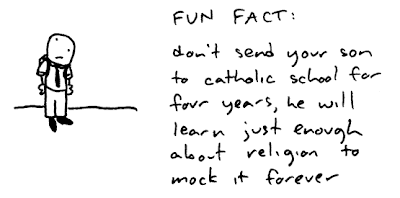 FUN FACT:
don't send your son
to catholic school for
four years, he will
learn just enough
about religion to
mock it forever